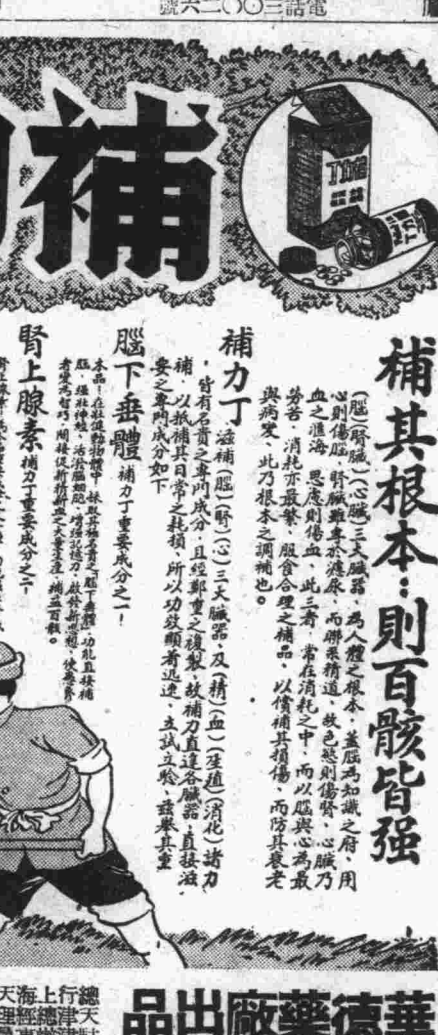 電話三〇〇二六號
補
補力丁
補其根本：則百骸皆强
（腦）（腎臟）（心臟）三大臟器，為人體之根本，蓋腦為知識之府，用
心則傷腦，腎臟雖專於濾尿，而聯系精道，故色慾則傷腎，心臟乃
血之滙海，思慮則傷血，此三者，常在消耗之中，而以腦與心為最
勞苦，消耗亦最繁，服食合理之補品，以償補其損傷，而防其衰老
與病變，此乃根本之調補也。
補力丁 滋補（腦）（腎）（心）三大臟器，及（精）（血）（生殖）（消化）諸力
，皆有名貴之專門成分，且經鄭重之複製，故補力直達各臟器，直接滋
補，以抵補其日常之耗損，所以功效顯著迅速，立試立驗，茲舉其重
要之專門成分如下
腦下垂體 補力丁重要成分之一！
本品：在壯健動物體中，採取其極名貴之「腦下垂體」功能直接補
腦，强壯神經，活潑腦細胞，增强記憶力，啟發新思想，使愚魯
者變為智巧，間接促新鮮血之大量生產，補益百骸。
腎上腺素 補力丁重要成分之二！
華德藥廠出品
總天
行津
上總
海經
天理